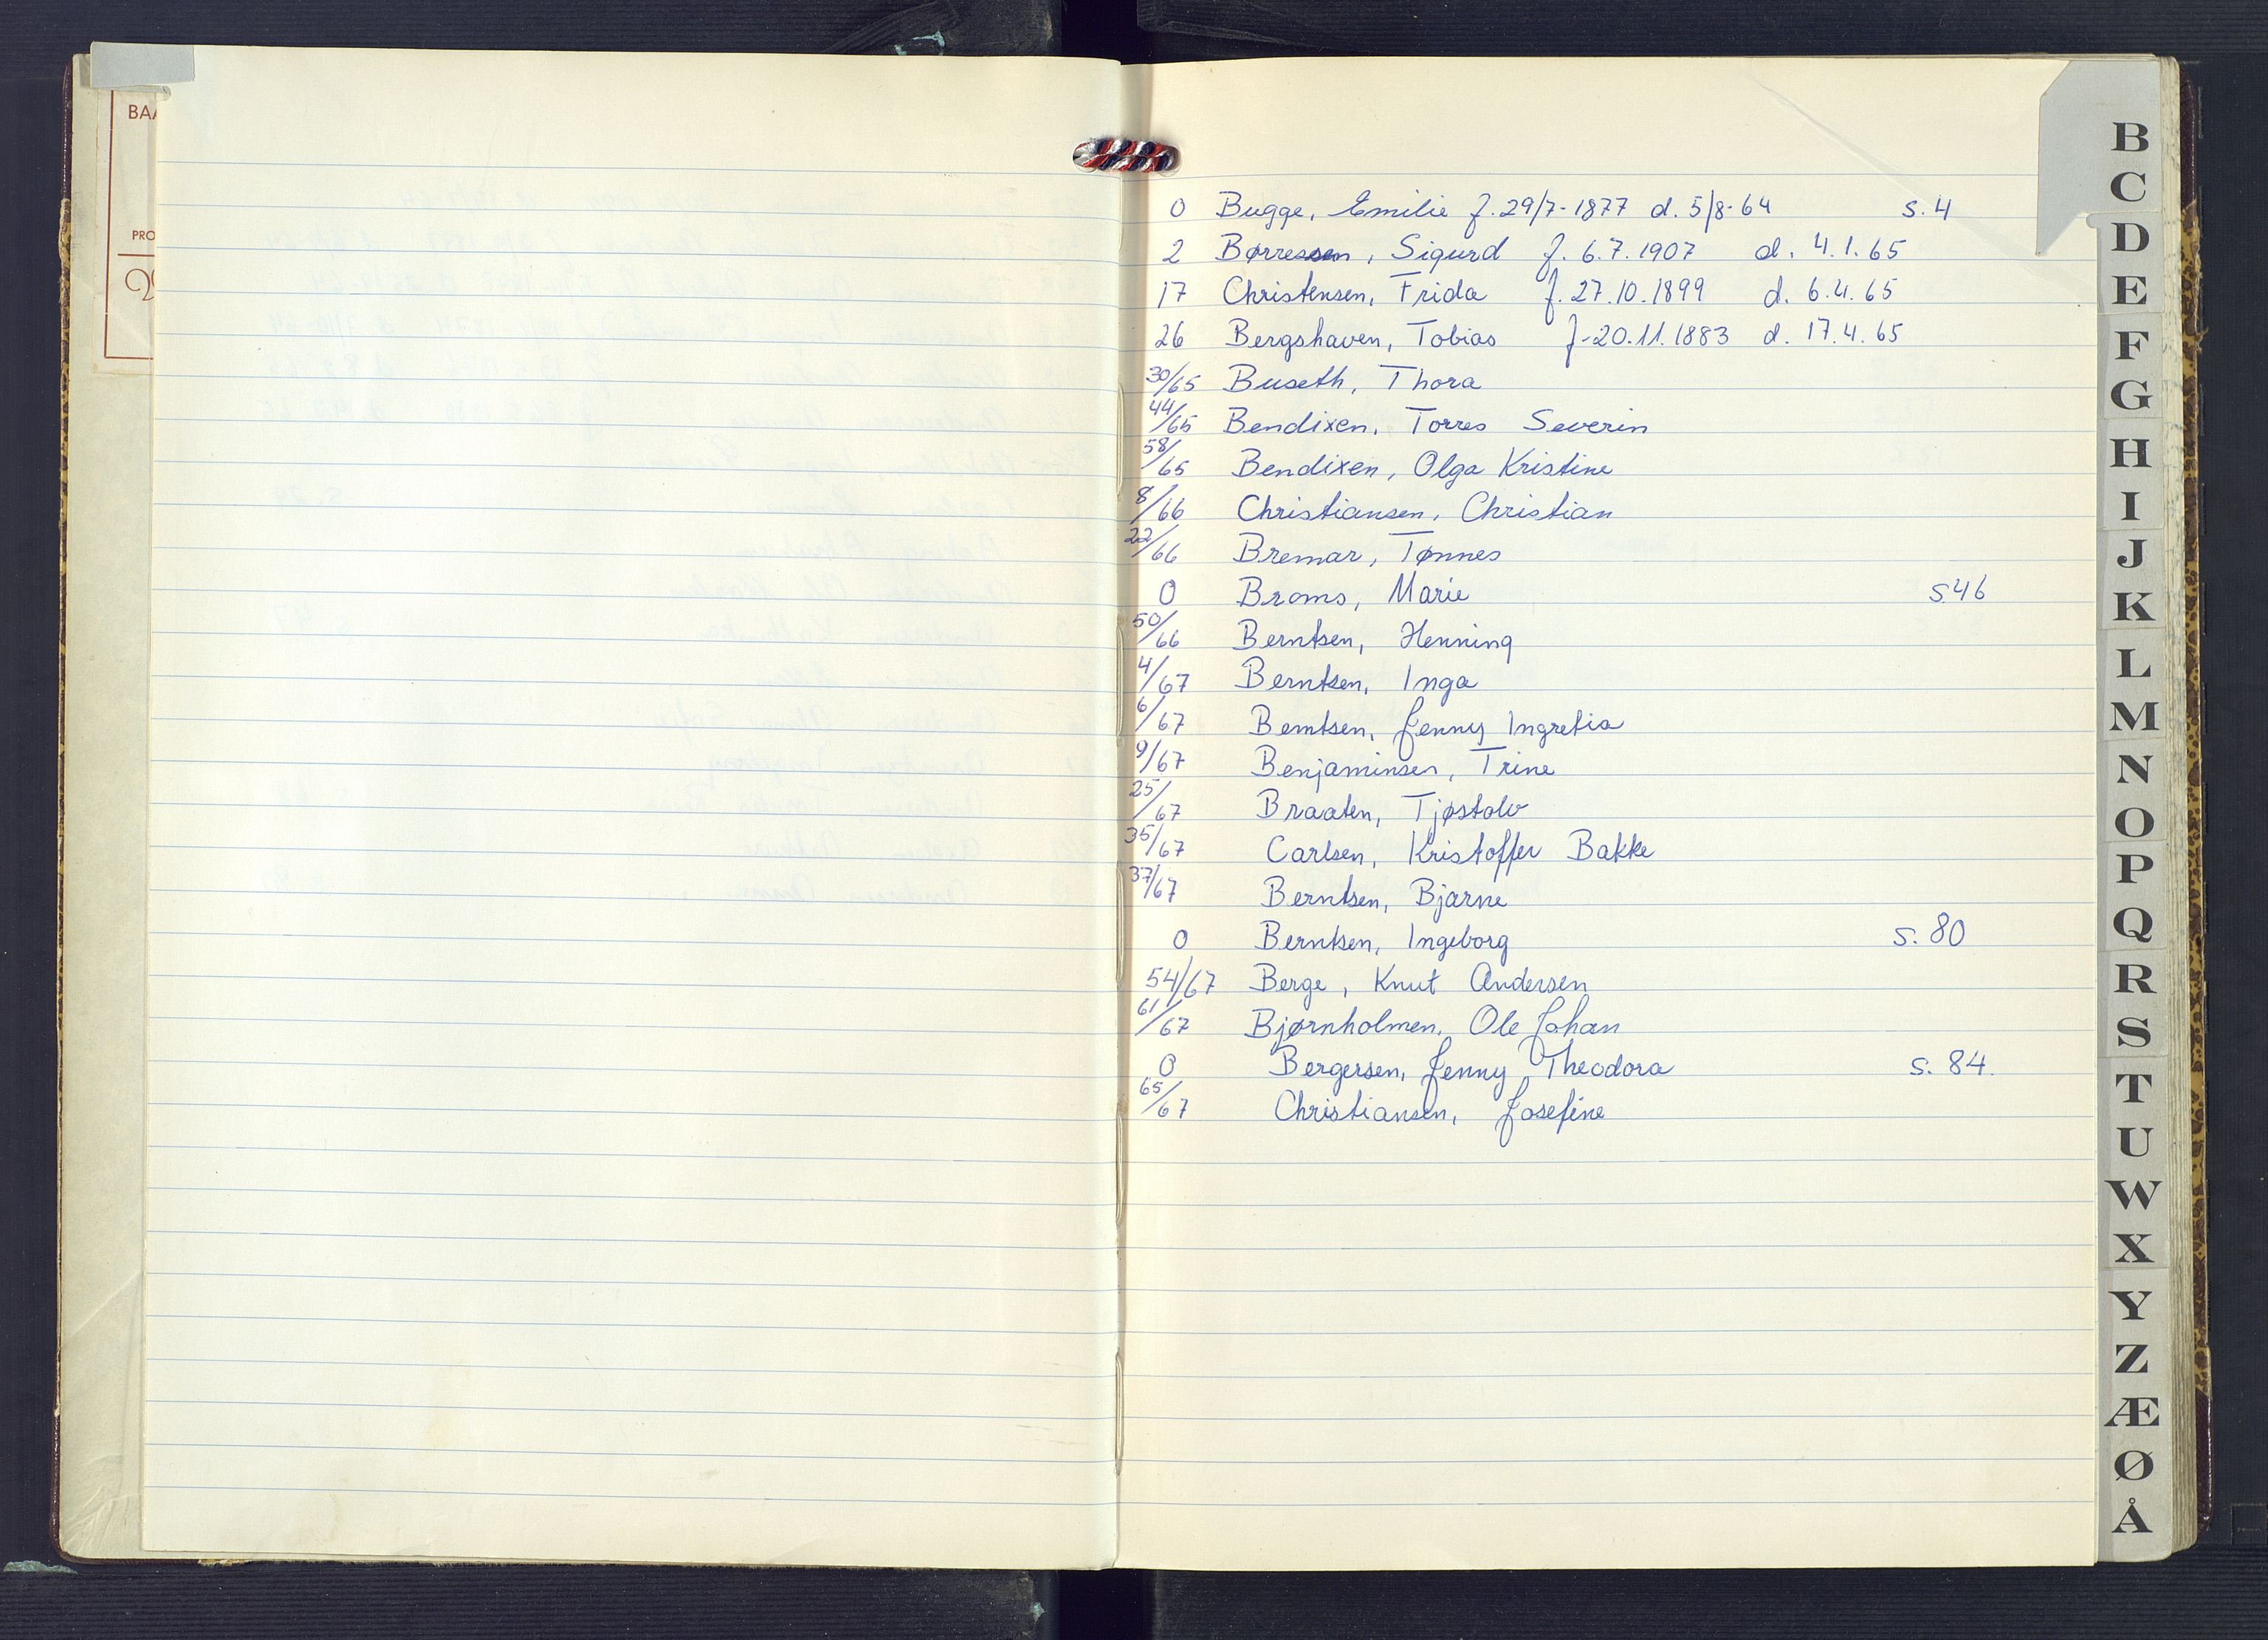 BAA
PRO
0 Bugge, Emilie f. 29/7-1877 d. 5/8-64 s. 4
2 Børressen, Sigurd f. 6.7.1907 d. 4.1.65
17 Christensen, Frida f. 27.10.1899 d. 6.4.65
26 Bergshaven, Tobias f-20.11.1883 d. 17.4.65
30/65 Buseth, Thora
44/65 Bendixen, Torres Severin
58/65 Bendixen, Olga Kristine
8/66 Christiansen, Christian
22/66 Bremar, Tønnes
0 Broms, Marie s46
50/66 Berntsen, Henning
4/67 Berntsen, Inga
6/67 Berntsen, Jenny Ingretia
9/67 Benjaminsen, Trine
25/67 Braaten, Tjøstolv
35/67 Carlsen, Kristoffer Bakke
37/67 Berntsen, Bjarne
0 Berntsen, Ingeborg s. 80
54/67 Berge, Knut Andersen
61/67 Bjørnholmen, Ole Johan
0 Bergersen, Jenny Theodora s. 84.
65/67 Christiansen, Josefine
B
C
D
E
F
G
H
I
J
K
L
M
N
O
P
Q
R
S
T
U
W
X
Y
Z
Æ
Ø
Å